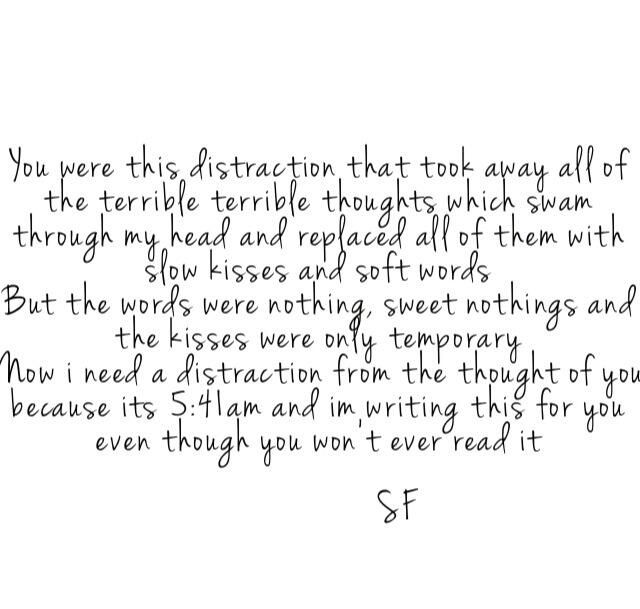 You were this distraction that took away all of
the terrible terrible thoughts which swam
through my head and replaced all of them with
slow kisses and soft words
But the words were nothing, sweet nothings and
the kisses were only temporary
Now i need a distraction from the thought of you
because its 5:41am and im writing this for you
even though you won't ever read it
SF